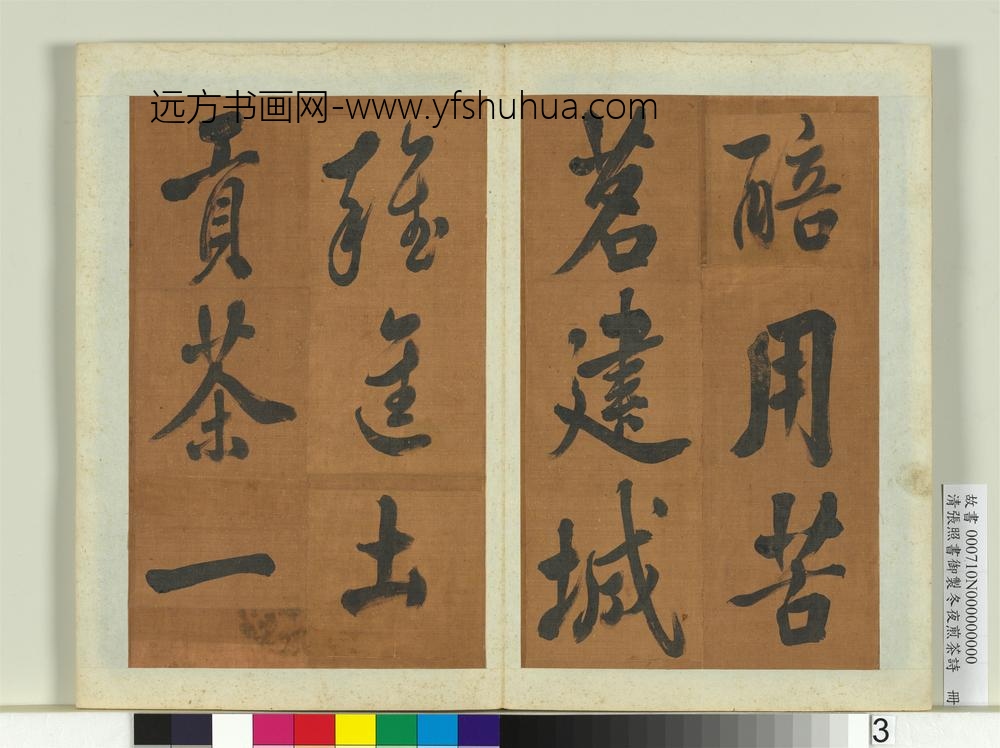 远方书画网-www.yfshuhua.com
醅用苦
茗建城
雜進土
貢茶一
故書 000710N000000000
清張照書御製冬夜煎茶詩 冊
3